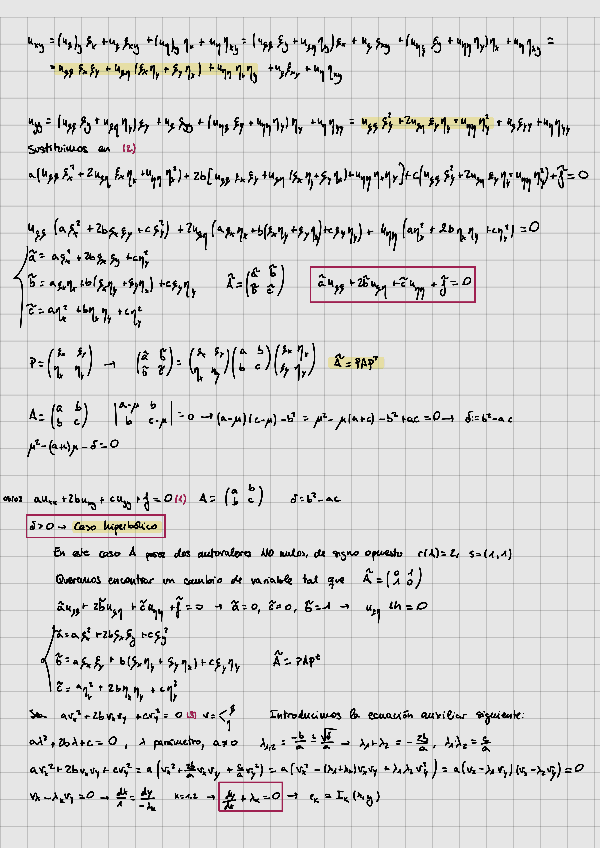 u_xy = (u_ξ)_y ξ_x + u_ξ ξ_xy + (u_η)_y η_x + u_η η_xy = (u_ξξ ξ_y + u_ξη η_y) ξ_x + u_ξ ξ_xy + (u_ηξ ξ_y + u_ηη η_y) η_x + u_η η_xy =
= u_ξξ ξ_x ξ_y + u_ξη (ξ_x η_y + ξ_y η_x) + u_ηη η_x η_y + u_ξ ξ_xy + u_η η_xy
u_yy = (u_ξξ ξ_y + u_ξη η_y) ξ_y + u_ξ ξ_yy + (u_ηξ ξ_y + u_ηη η_y) η_y + u_η η_yy = u_ξξ ξ_y² + 2u_ξη ξ_y η_y + u_ηη η_y² + u_ξ ξ_yy + u_η η_yy
Sustituimos en (2)
a(u_ξξ ξ_x² + 2u_ξη ξ_x η_x + u_ηη η_x²) + 2b[u_ξξ ξ_x ξ_y + u_ξη (ξ_x η_y + ξ_y η_x) + u_ηη η_x η_y] + c(u_ξξ ξ_y² + 2u_ξη ξ_y η_y + u_ηη η_y²) + f̃ = 0
u_ξξ (aξ_x² + 2bξ_x ξ_y + cξ_y²) + 2u_ξη (aξ_x η_x + b(ξ_x η_y + ξ_y η_x) + cξ_y η_y) + u_ηη (aη_x² + 2bη_x η_y + cη_y²) = 0
ã = aξ_x² + 2bξ_x ξ_y + cη_y²
b̃ = aξ_x η_x + b(ξ_x η_y + ξ_y η_x) + cξ_y η_y Ã = (ã b̃ / b̃ c̃) ãu_ξξ + 2b̃u_ξη + c̃u_ηη + f̃ = 0
c̃ = aη_x² + bη_x η_y + cη_y²
P = (ξ_x ξ_y / η_x η_y) → (ã b̃ / b̃ c̃) = (ξ_x ξ_y / η_x η_y) (a b / b c) (ξ_x η_x / ξ_y η_y) Ã = PAPᵗ
A = (a b / b c) |a-μ b / b c-μ| = 0 → (a-μ)(c-μ) - b² = μ² - μ(a+c) - b² + ac = 0 → δ := b² - ac
μ² - (a+c)μ - δ = 0
au_xx + 2bu_xy + cu_yy + f = 0 (1) A = (a b / b c) δ = b² - ac
δ > 0 → Caso hiperbólico
En este caso A posee dos autovalores NO nulos, de signo opuesto r(A) = 2, s = (1,1)
Queremos encontrar un cambio de variable tal que Ã = (0 1 / 1 0)
ãu_ξξ + 2b̃u_ξη + c̃u_ηη + f̃ = 0 → ã = 0, c̃ = 0, b̃ = 1 → u_ξη + h = 0
ã = aξ_x² + 2bξ_x ξ_y + cξ_y²
b̃ = aξ_x ξ_y + b(ξ_x η_y + ξ_y η_x) + cξ_y η_y Ã = PAPᵗ
c̃ = aη_x² + 2bη_x η_y + cη_y²
Sea av_x² + 2bv_x v_y + cv_y² = 0 (3) v = < ξ / η Introducimos la ecuación auxiliar siguiente:
aλ² + 2bλ + c = 0, λ parámetro, a≠0 λ_1,2 = -b/a ± √δ/a → λ₁ + λ₂ = -2b/a, λ₁λ₂ = c/a
av_x² + 2bv_x v_y + cv_y² = a(v_x² + 2b/a v_x v_y + c/a v_y²) = a(v_x² - (λ₁+λ₂)v_x v_y + λ₁λ₂v_y²) = a(v_x - λ₁v_y)(v_x - λ₂v_y) = 0
v_x - λ_k v_y = 0 → dx/1 = dy/-λ_k k = 1,2 → dy/dx + λ_k = 0 → c_k = I_k(x,y)